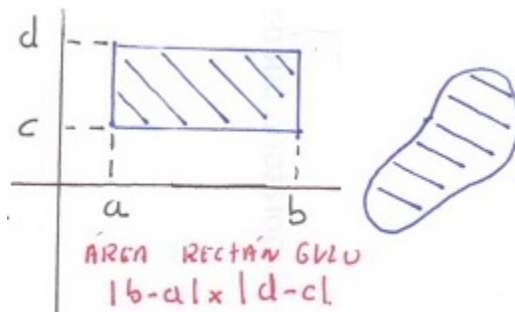 d
c
a b
ÁREA RECTÁNGULO
|b-a| x |d-c|.